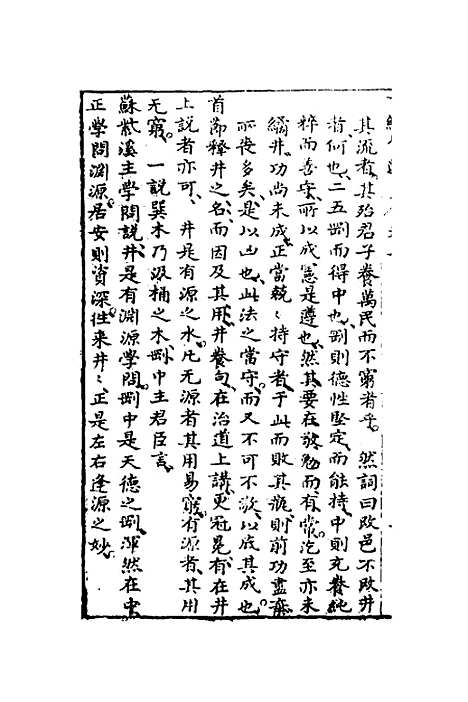 其流者其殆君子養萬民而不窮者乎然詞曰改邑不改井
者何也二五剛而得中也剛則德性堅定而能持中則充養純
粹而善守所以成憲是遵也然其要在敬勉而有常汔至亦未
繘井功尚未成正當兢〻持守者于此而敗其瓶則前功盡棄
所喪多矣是以凶也此法之當守而又不可不敬以底其成也
首節釋井之名而因及其用井養句在治道上講更冠冕有在井
上說者亦可井是有源之水凡无源者其用易窮有源者其用
无窮一說巽木乃汲桶之木剛中主君臣言
蘇紫溪主學問說井是有淵源學問剛中是天德之剛渾然在中
正學問淵源居安則資深往來井〻正是左右逢源之妙